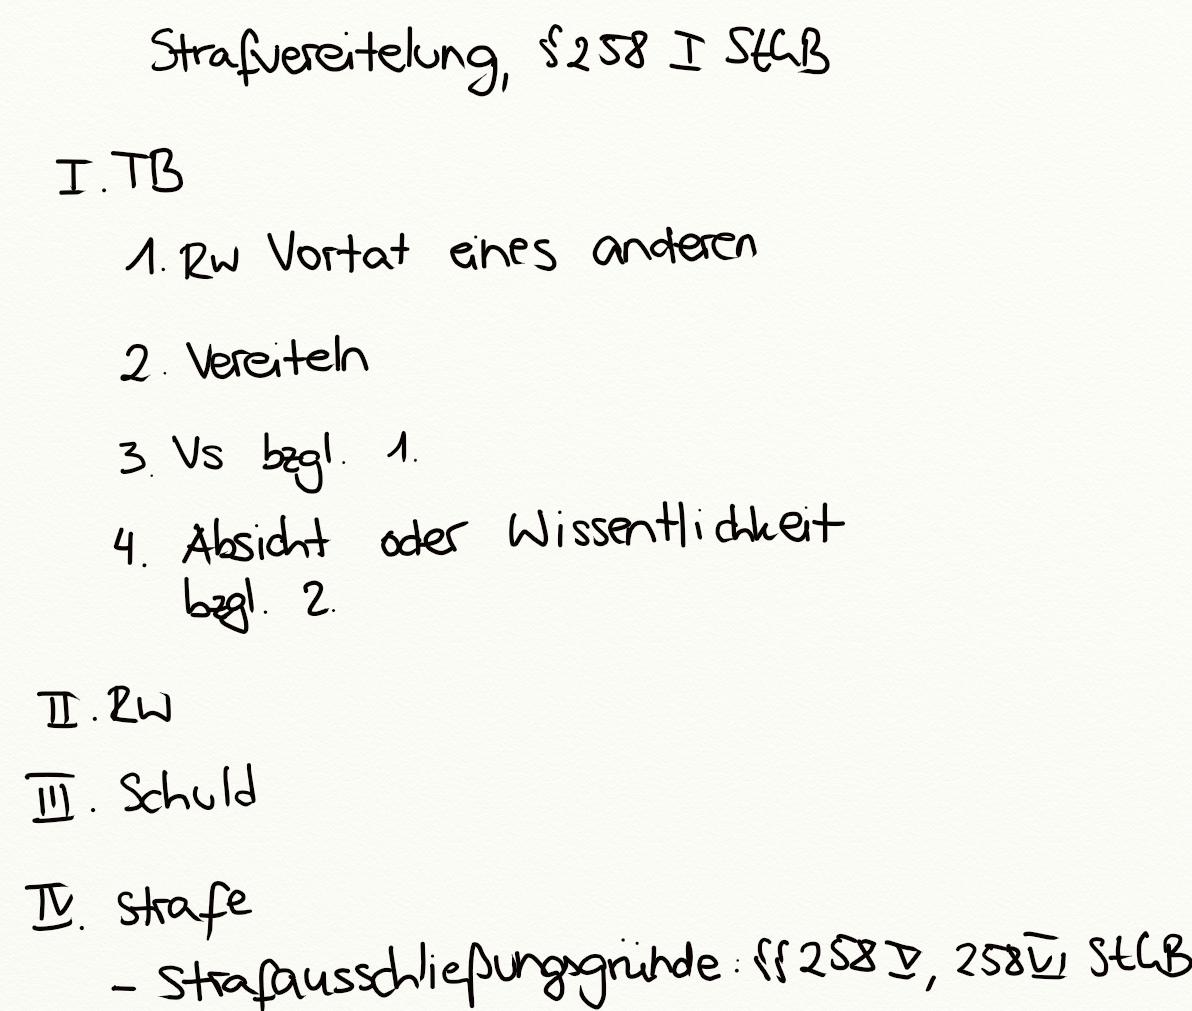 Strafvereitelung, §258 I StGB
I. TB
1. RW Vortat eines anderen
2. Vereiteln
3. Vs bzgl. 1.
4. Absicht oder Wissentlichkeit
bzgl. 2.
II. RW
III. Schuld
IV. Strafe
- Strafausschließungsgründe: §§ 258 V, 258 VI StGB